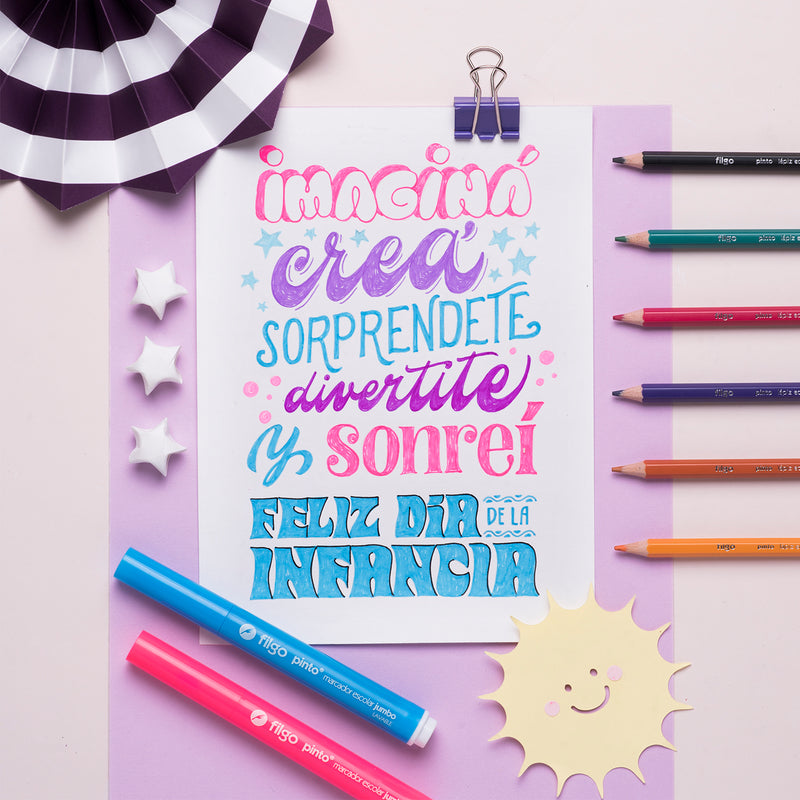 imaginá
creá
SORPRENDETE
divertite
y sonreí
FELIZ DÍA DE LA
INFANCIA
filgo pinto lápiz
filgo pinto lápiz ec
filgo pinto lápiz ec
filgo pinto lápiz ec
filgo pinto lápiz ec
filgo pinto lápiz ec
filgo pinto® marcador escolar jumbo
LAVABLE
filgo pinto® marcador escolar jumbo